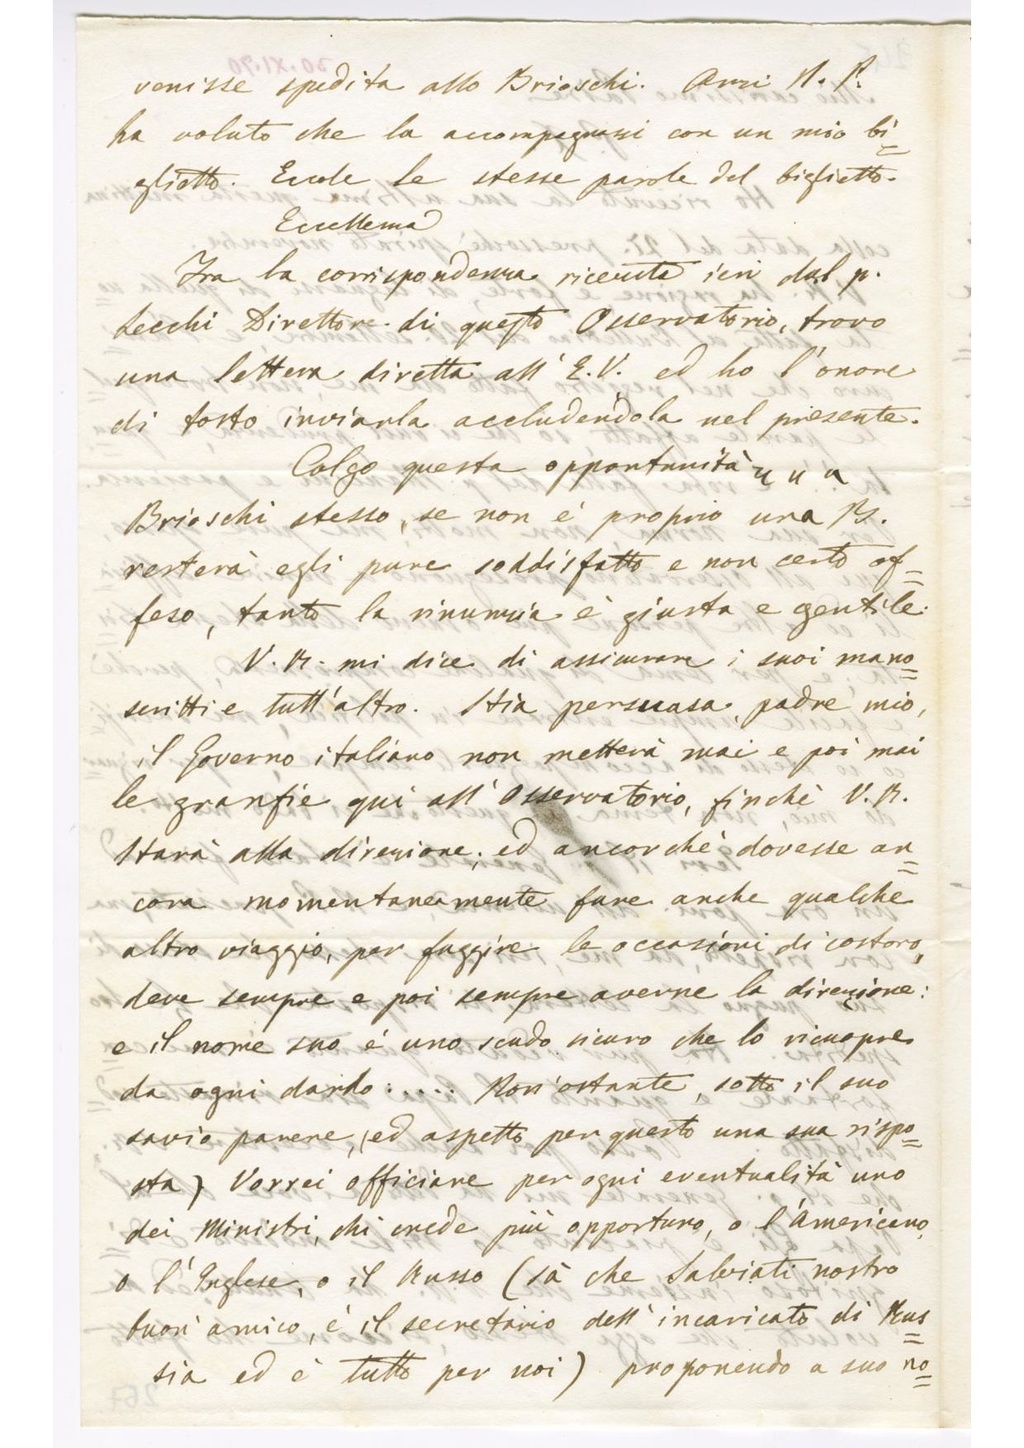 venisse spedita allo Brioschi. Anzi N. P.
ha voluto che la accompagnassi con un mio bi=
glietto. Eccole le stesse parole del biglietto.
Eccellenza
Fra la corrispondenza ricevuta ieri dal p.
Secchi Direttore di questo Osservatorio, trovo
una lettera diretta all' E.V. ed ho l'onore
di tosto inviarla accludendola nel presente.
Colgo questa opportunità
Brioschi stesso, se non è proprio una B.
resterà egli pure soddisfatto e non certo of=
feso, tanto la rinunzia è giusta e gentile.
V. R. mi dice di assicurare i suoi mano=
scritti e tutt'altro. Stia persuasa, padre mio,
il Governo italiano non metterà mai e poi mai
le granfie qui all' Osservatorio, finchè V. R.
starà alla direzione; ed ancorchè dovesse an=
cora momentaneamente fare anche qualche
altro viaggio, per fuggire le occasioni di costoro,
deve sempre e poi sempre averne la direzione:
e il nome suo è uno scudo sicuro che lo ricuopre
da ogni dardo: ..... Non'ostante, sotto il suo
savio parere, (ed aspetto per questo una sua rispo=
sta) Vorrei officiare per ogni eventualità uno
dei Ministri, chi crede più opportuno, o l'Americano,
o l'Inglese, o il Russo (sà che Salviati nostro
buon'amico, è il secretario dell'incaricato di Rus=
sia ed è tutto per noi) proponendo a suo no=